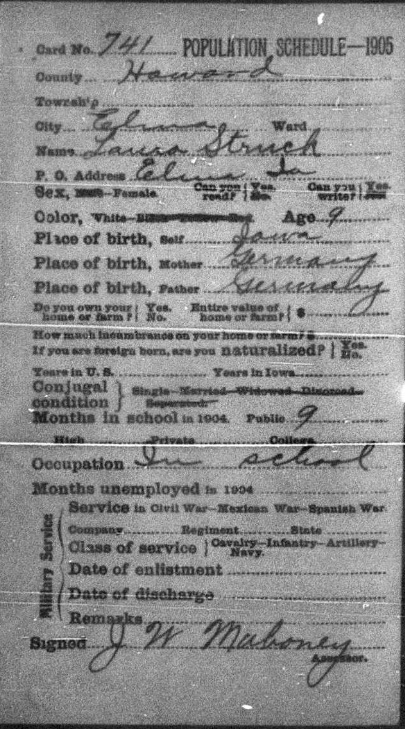 Card No. 741 POPULATION SCHEDULE—1905
County Howard
Townsh'p
City Elma Ward
Name Laura Struck
P. O. Address Elma Ia
Sex, Male—Female Can you read? { Yes. No. Can you write? { Yes. No.
Color, White—Black—Yellow—Red Age 9
Place of birth, Self Iowa
Place of birth, Mother Germany
Place of birth, Father Germany
Do you own your home or farm? { Yes. No. Entire value of home or farm? { $
How much incumbrance on your home or farm? $
If you are foreign born, are you naturalized? { Yes. No.
Years in U. S. Years in Iowa
Conjugal condition } Single—Married—Widowed—Divorced—Separated.
Months in school in 1904. Public 9
High Private College
Occupation In school
Months unemployed in 1904
Military Service
Service in Civil War—Mexican War—Spanish War
Company Regiment State
Class of service } Cavalry—Infantry—Artillery—Navy.
Date of enlistment
Date of discharge
Remarks
Signed J W Mahoney
Assessor.